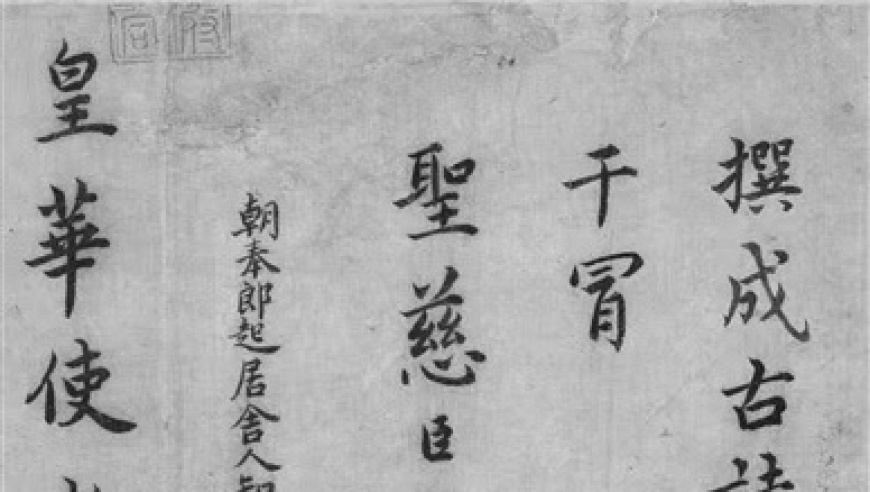 撰成古
干冒
聖慈臣
朝奉郎起居舍人知
皇華使